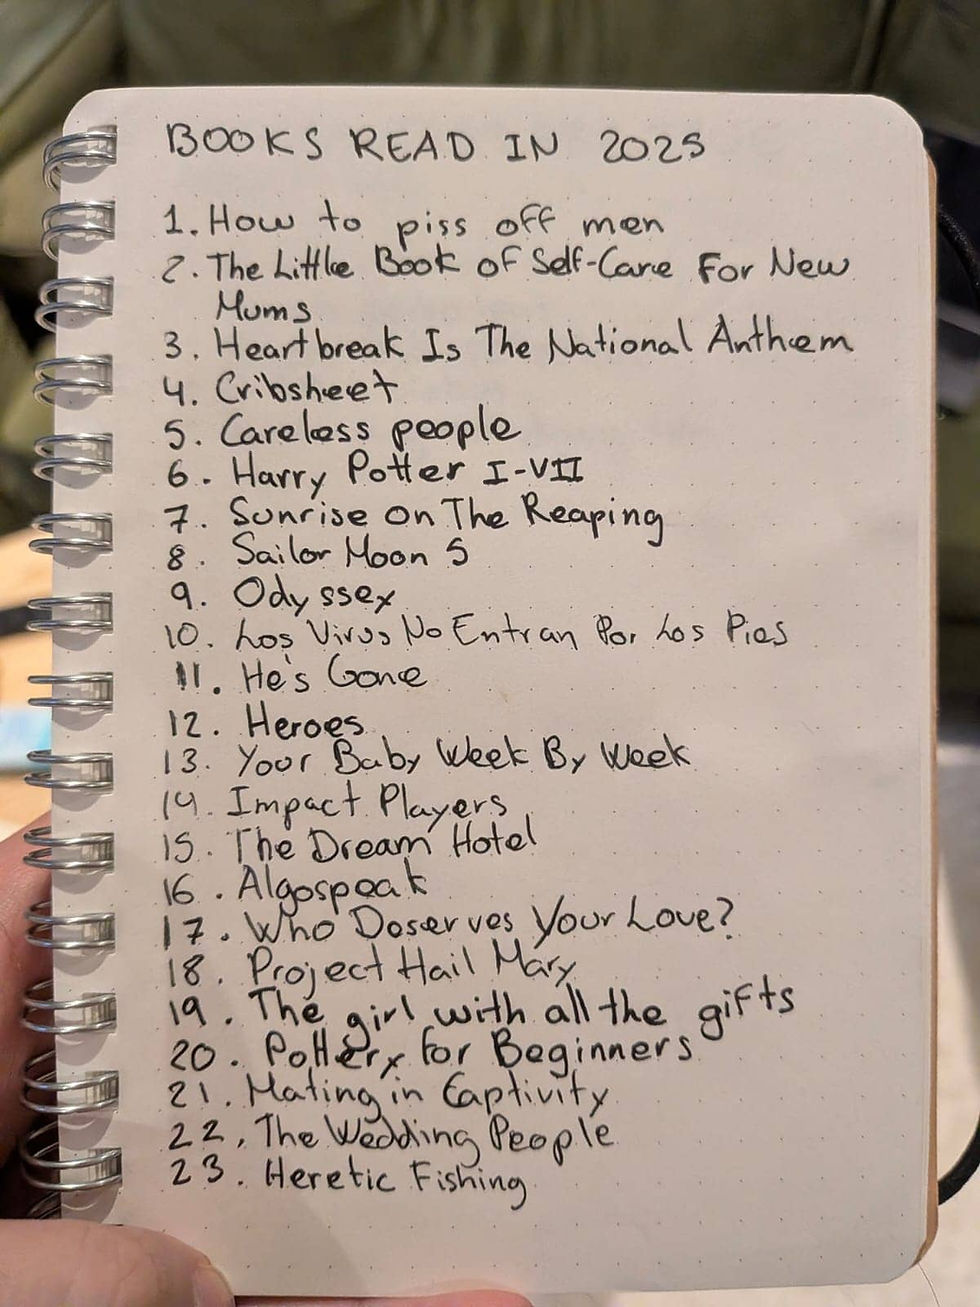 BOOKS READ IN 2025
1. How to piss off men
2. The Little Book of Self-Care For New
Mums
3. Heartbreak Is The National Anthem
4. Cribsheet
5. Careless people
6. Harry Potter I-VII
7. Sunrise On The Reaping
8. Sailor Moon S
9. Odyssey
10. Los Virus No Entran Por Los Pies
11. He's Gone
12. Heroes
13. Your Baby Week By Week
14. Impact Players
15. The Dream Hotel
16. Algospeak
17. Who Deserves Your Love?
18. Project Hail Mary
19. The girl with all the gifts
20. Pottery for Beginners
21. Mating in Captivity
22. The Wedding People
23. Heretic Fishing